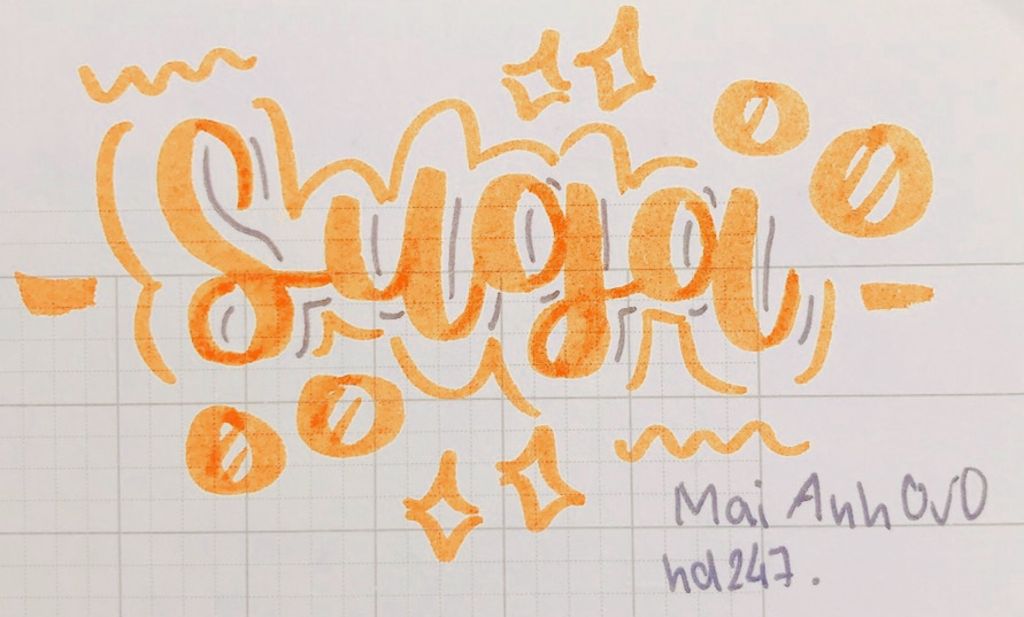 Suga
Mai Anh OvO
hd247.